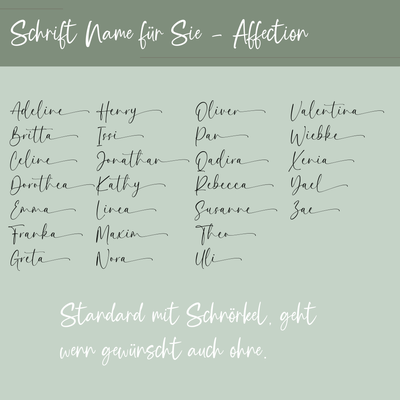 Schrift Name für Sie - Affection
Adeline Henry Oliver Valentina
Britta Issi Pan Wiebke
Celine Jonathan Qadira Xenia
Dorothea Kathy Rebecca Yael
Emma Linea Susanne Zae
Franka Maxim Theo
Greta Nora Uli
Standard mit Schnörkel, geht
wenn gewünscht auch ohne.